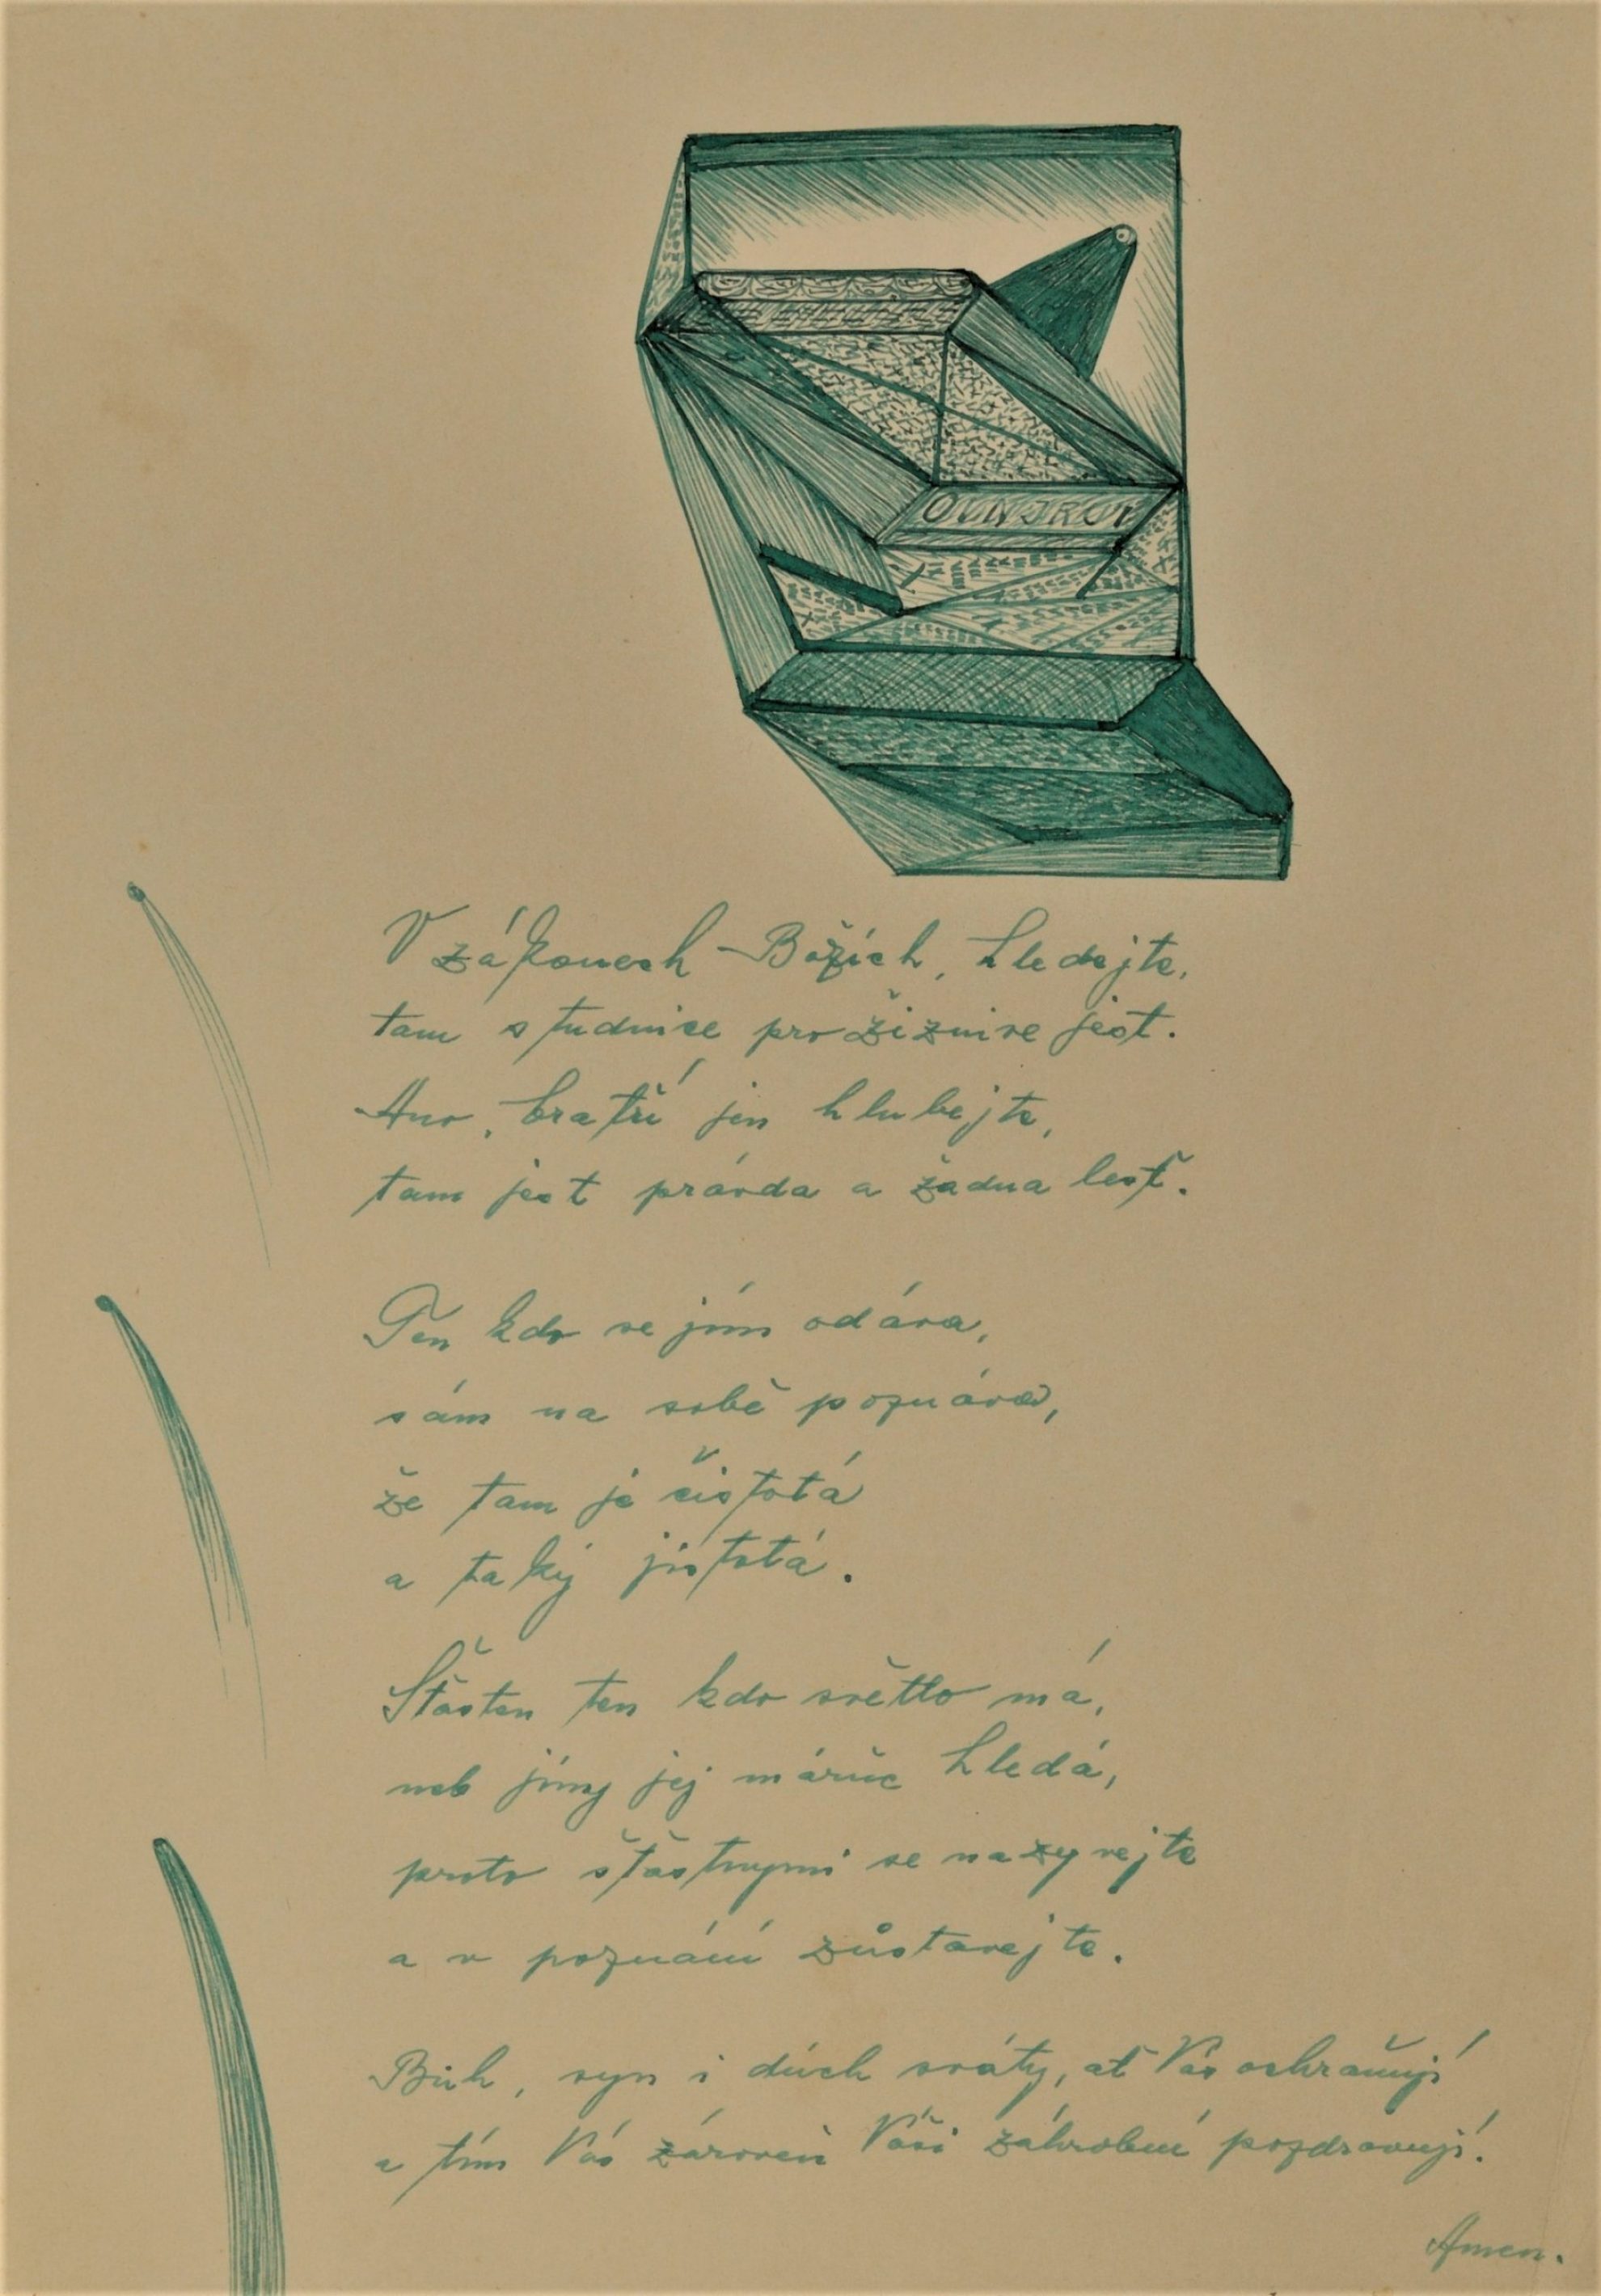 V zákonech Božích, hledejte,
tam studnice pro žiznive jest.
Ano, bratří jen hlubejte,
tam jest právda a žadna lesť.
Ten kdo se jím odáva,
sám na sobě poznáva,
že tam je čistotá
a taký jistotá.
Šťasten ten kdo světlo má,
neb jíny jej márně hledá,
proto šťastnymi se nazyvejte
a v poznání zůstavejte.
Búh, syn i dúch sváty, ať Vás ochraňují
a tím Vás zároveň Váši záhrobní pozdravují!
Amen.